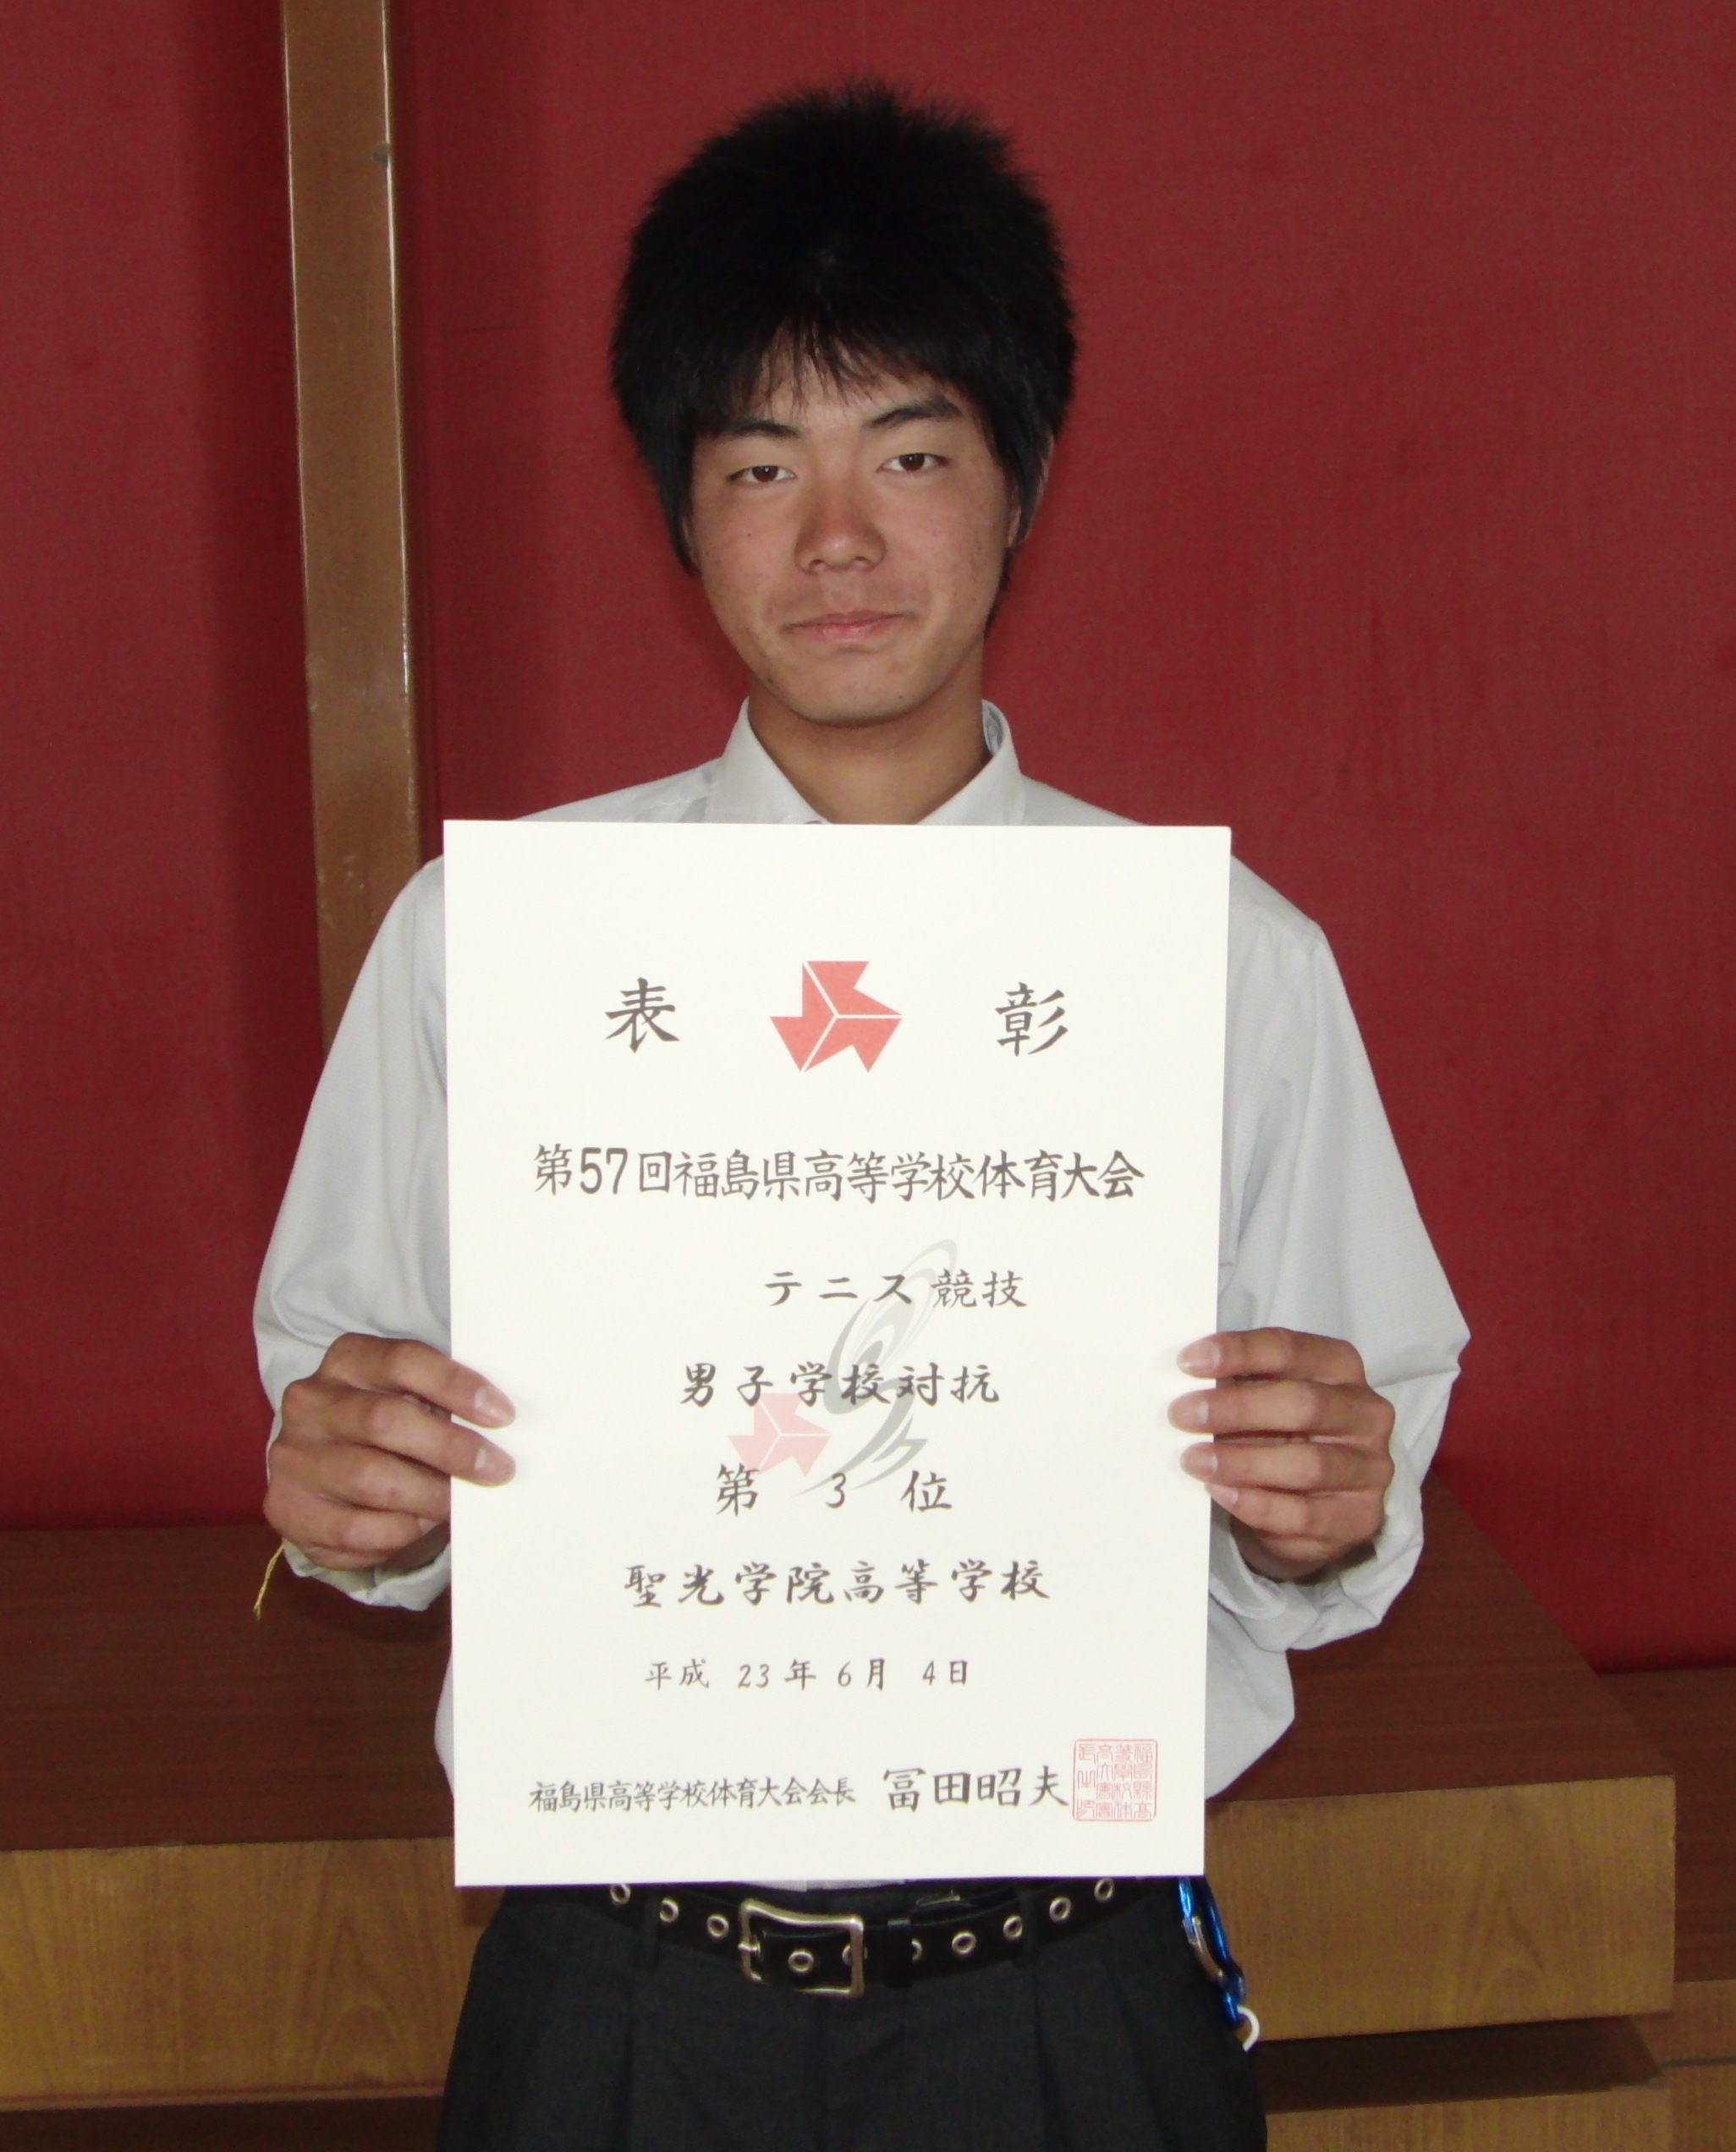 表彰
第57回福島県高等学校体育大会
テニス競技
男子学校対抗
第 3 位
聖光学院高等学校
平成 23年 6月 4日
福島県高等学校体育大会会長 冨田昭夫